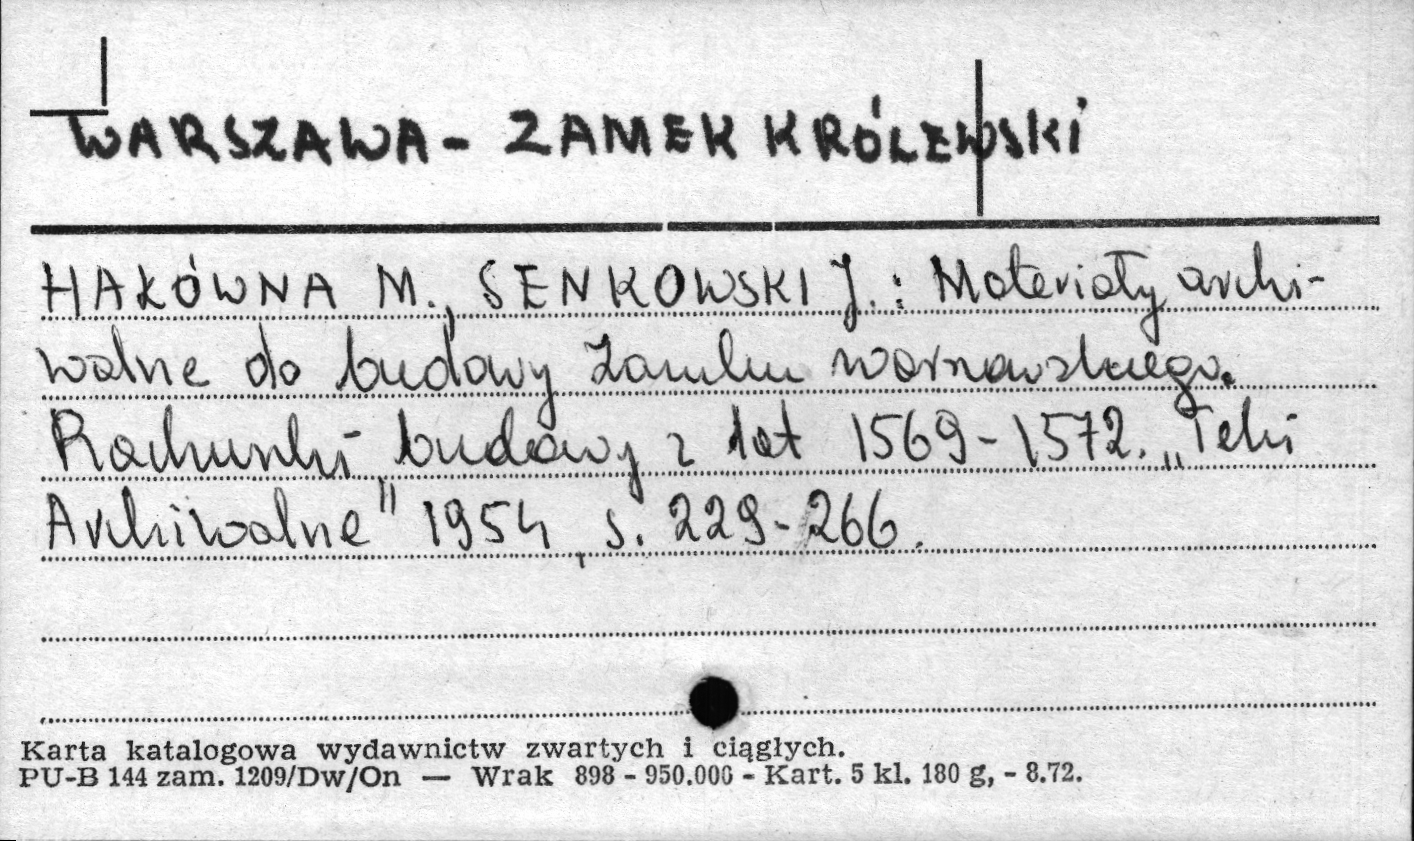 WARSZAWA - ZAMEK KRÓLEWSKI
HAŁÓWNA M., SENKOWSKI J.: Materiały archi-
walne do budowy Zamku warszawskiego.
Rachunki budowy z lat 1569-1572. „Teki
Archiwalne" 1954, s. 229-266.
Karta katalogowa wydawnictw zwartych i ciągłych.
PU-B 144 zam. 1209/Dw/On — Wrak 898 - 950.000 - Kart. 5 kl. 180 g, - 8.72.